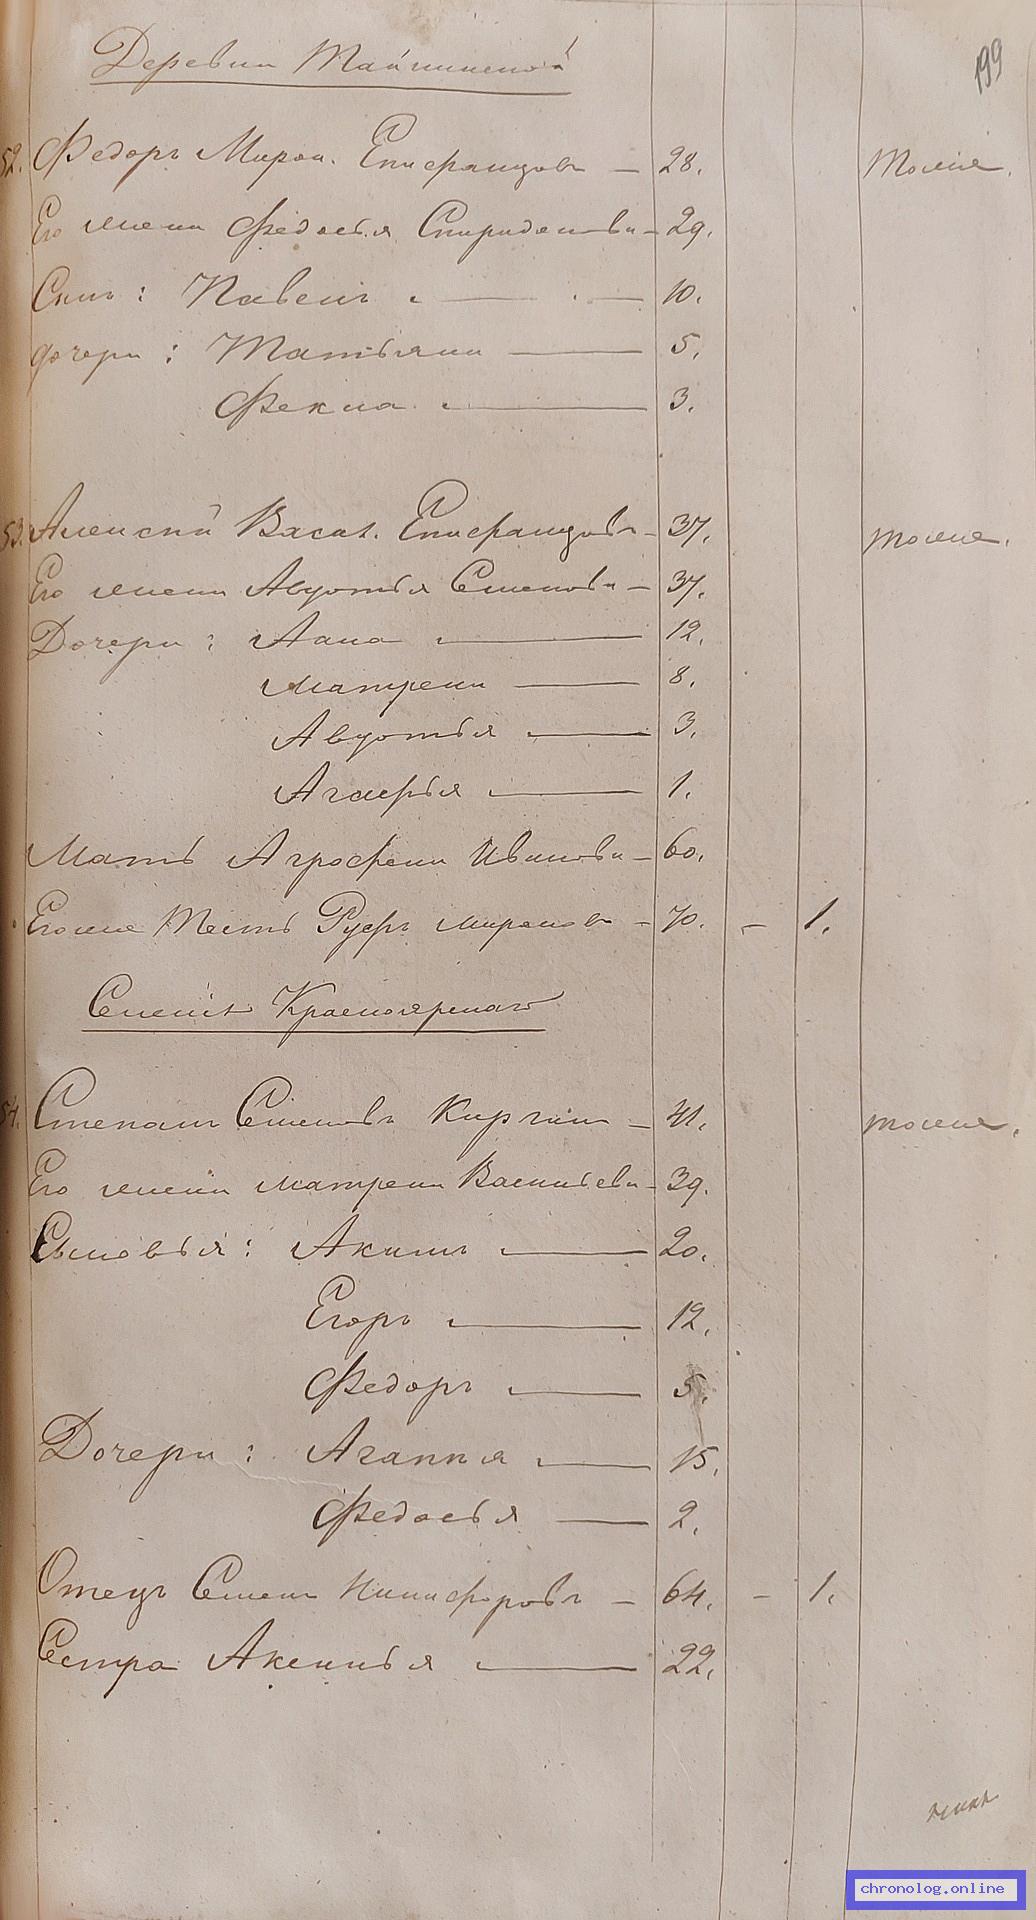 199
Деревни Тайнинской
52. Федоръ Мирон. Епифанцовъ — 28. тоже.
Его жена Федосья Спиридонова — 29.
Сынъ: Павелъ — 10.
дочери: Татьяна — 5.
Фекла — 3.
53. Алексѣй Васил. Епифанцовъ — 37. тоже.
Его жена Авдотья Семенова — 37.
Дочери: Анна — 12.
Матрена — 8.
Авдотья — 3.
Агафья — 1.
Мать Агрофена Иванова — 60.
Егоже Тесть Мироновъ — 70. — 1.
Селенія Красноярскаго
54. Степанъ Семеновъ — 41. тоже.
Его жена Матрена Васильева — 39.
Сыновья: Акимъ — 20.
Егоръ — 12.
Федоръ — 5.
Дочери: Агапия — 15.
Федосья — 2.
Отецъ Семенъ Никифоровъ — 64. — 1.
Сестра Аксинья — 22.
chronolog.online